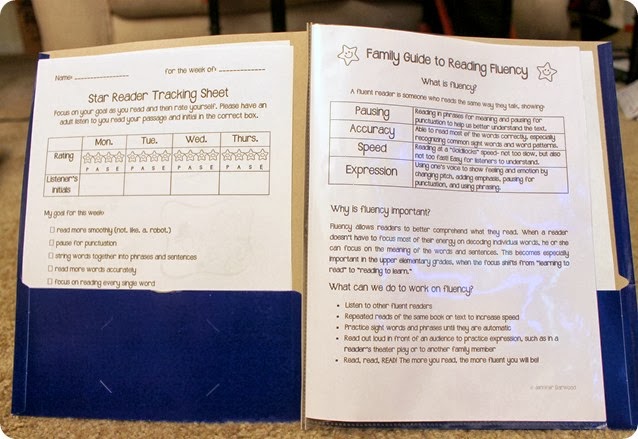 Name: for the week of:
Star Reader Tracking Sheet
Focus on your goal as you read and then rate yourself. Please have an
adult listen to you read your passage and initial in the correct box.
Mon. Tue. Wed. Thurs.
Rating
P A S E P A S E P A S E P A S E
Listener's
Initials
My goal for this week:
read more smoothly (not. like. a. robot.)
pause for punctuation
string words together into phrases and sentences
read more words accurately
focus on reading every single word
Family Guide to Reading Fluency
What is fluency?
A fluent reader is someone who reads the same way they talk, showing:
Pausing Reading in phrases for meaning and pausing for
punctuation to help us better understand the text.
Accuracy Able to read most of the words correctly, especially
recognizing common sight words and word patterns.
Speed Reading at a "Goldilocks" speed- not too slow, but also
not too fast! Easy for listeners to understand.
Expression Using one's voice to show feeling and emotion by
changing pitch, adding emphasis, pausing for
punctuation, and using phrasing.
Why is fluency important?
Fluency allows readers to better comprehend what they read. When a reader
doesn't have to focus most of their energy on decoding individual words, he or she
can focus on the meaning of the words and sentences. This becomes especially
important in the upper elementary grades, when the focus shifts from "learning to
read" to "reading to learn."
What can we do to work on fluency?
• Listen to other fluent readers
• Repeated reads of the same book or text to increase speed
• Practice sight words and phrases until they are automatic
• Read out loud in front of an audience to practice expression, such as in a
reader's theater play or to another family member
• Read, read, READ! The more you read, the more fluent you will be!
© Jennifer